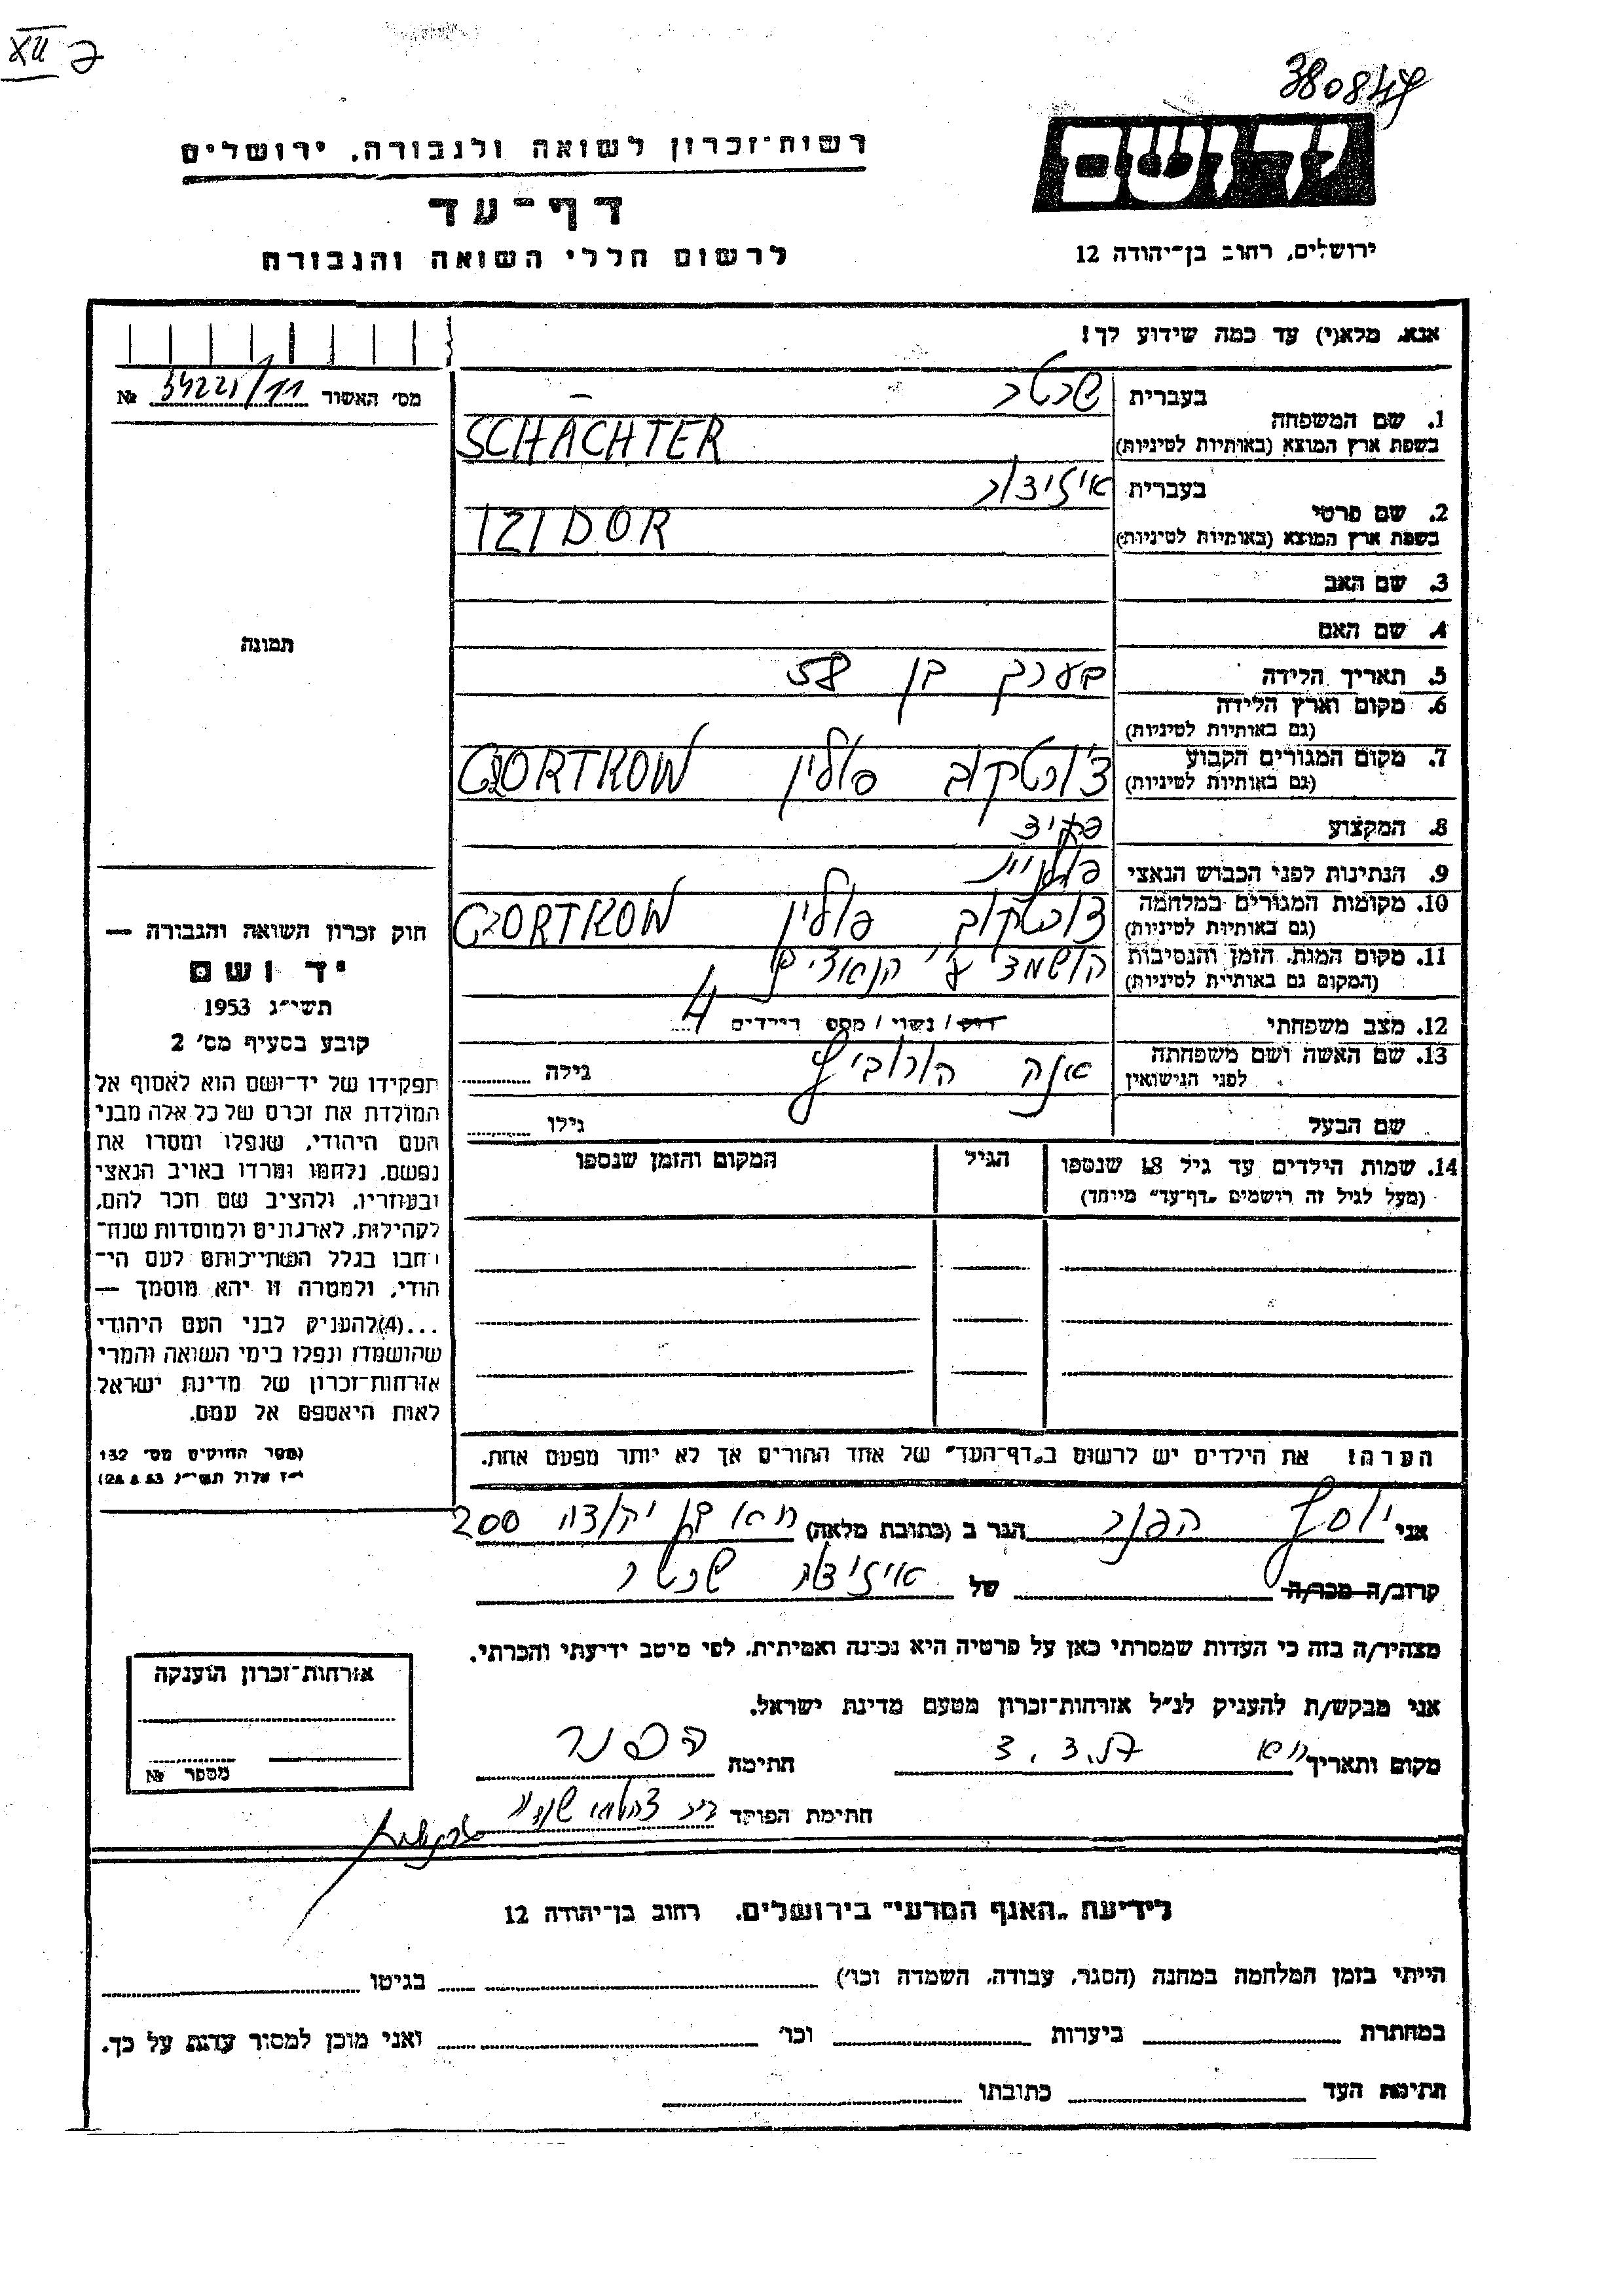 XII
380847
יד ושם
רשות־זכרון לשואה ולגבורה, ירושלים
דף־עד
לרשום חללי השואה והגבורה
ירושלים, רחוב בן־יהודה 12
אנא, מלא(י) עד כמה שידוע לך!
מס׳ האשור 34221/11 №
1. שם המשפחה
בעברית שכטר
בשפת ארץ המוצא (באותיות לטיניות) SCHÄCHTER
2. שם פרטי
בעברית איזידור
בשפת ארץ המוצא (באותיות לטיניות) IZIDOR
3. שם האב
4. שם האם
תמונה
5. תאריך הלידה בערך בן 58
6. מקום וארץ הלידה
(גם באותיות לטיניות)
7. מקום המגורים הקבוע צ'ורטקוב פולין CZORTKOW
(גם באותיות לטיניות)
8. המקצוע פקיד
9. הנתינות לפני הכבוש הנאצי פולנית
10. מקומות המגורים במלחמה צורטקוב פולין CZORTKOW
(גם באותיות לטיניות)
11. מקום המות, הזמן והנסיבות הושמד ע"י הנאצים
(המקום גם באותיות לטיניות)
12. מצב משפחתי רווק / נשוי / מספר ילדים 4
13. שם האשה ושם משפחתה אנה הורוביץ גילה
לפני הנישואין
שם הבעל גילו
14. שמות הילדים עד גיל 18 שנספו הגיל המקום והזמן שנספו
(מעל לגיל זה רושמים „דף־עד” מיוחד)
חוק זכרון השואה והגבורה —
יד ושם
תשי״ג 1953
קובע בסעיף מס׳ 2
תפקידו של יד־ושם הוא לאסוף אל
המולדת את זכרם של כל אלה מבני
העם היהודי, שנפלו ומסרו את
נפשם, נלחמו ומרדו באויב הנאצי
ובעוזריו, ולהציב שם וזכר להם,
לקהילות, לארגונים ולמוסדות שנח־
רבו בגלל השתייכותם לעם הי־
הודי, ולמטרה זו יהא מוסמך —
...(4)להעניק לבני העם היהודי
שהושמדו ונפלו בימי השואה והמרי
אזרחות־זכרון של מדינת ישראל
לאות היאספם אל עמם.
(ספר החוקים מס׳ 132
י״ז אלול תשי״ג 28.8.53)
הערה! את הילדים יש לרשום ב„דף־העד” של אחד ההורים אך לא יותר מפעם אחת.
אני יוסף הפנר הגר ב (כתובת מלאה) 200
קרוב/ה מכר/ה של איזידור שכטר
מצהיר/ה בזה כי העדות שמסרתי כאן על פרטיה היא נכונה ואמיתית, לפי מיטב ידיעתי והכרתי.
אני מבקש/ת להעניק לנ״ל אזרחות־זכרון מטעם מדינת ישראל.
מקום ותאריך 3.3.57 חתימה הפנר
חתימת הפוקד
אזרחות־זכרון הוענקה
מספר №
לידיעת „האגף המדעי” בירושלים, רחוב בן־יהודה 12
הייתי בזמן המלחמה במחנה (הסגר, עבודה, השמדה וכו׳) בגיטו
במחתרת ביערות וכו׳ ואני מוכן למסור עדות על כך.
חתימת העד כתובתו